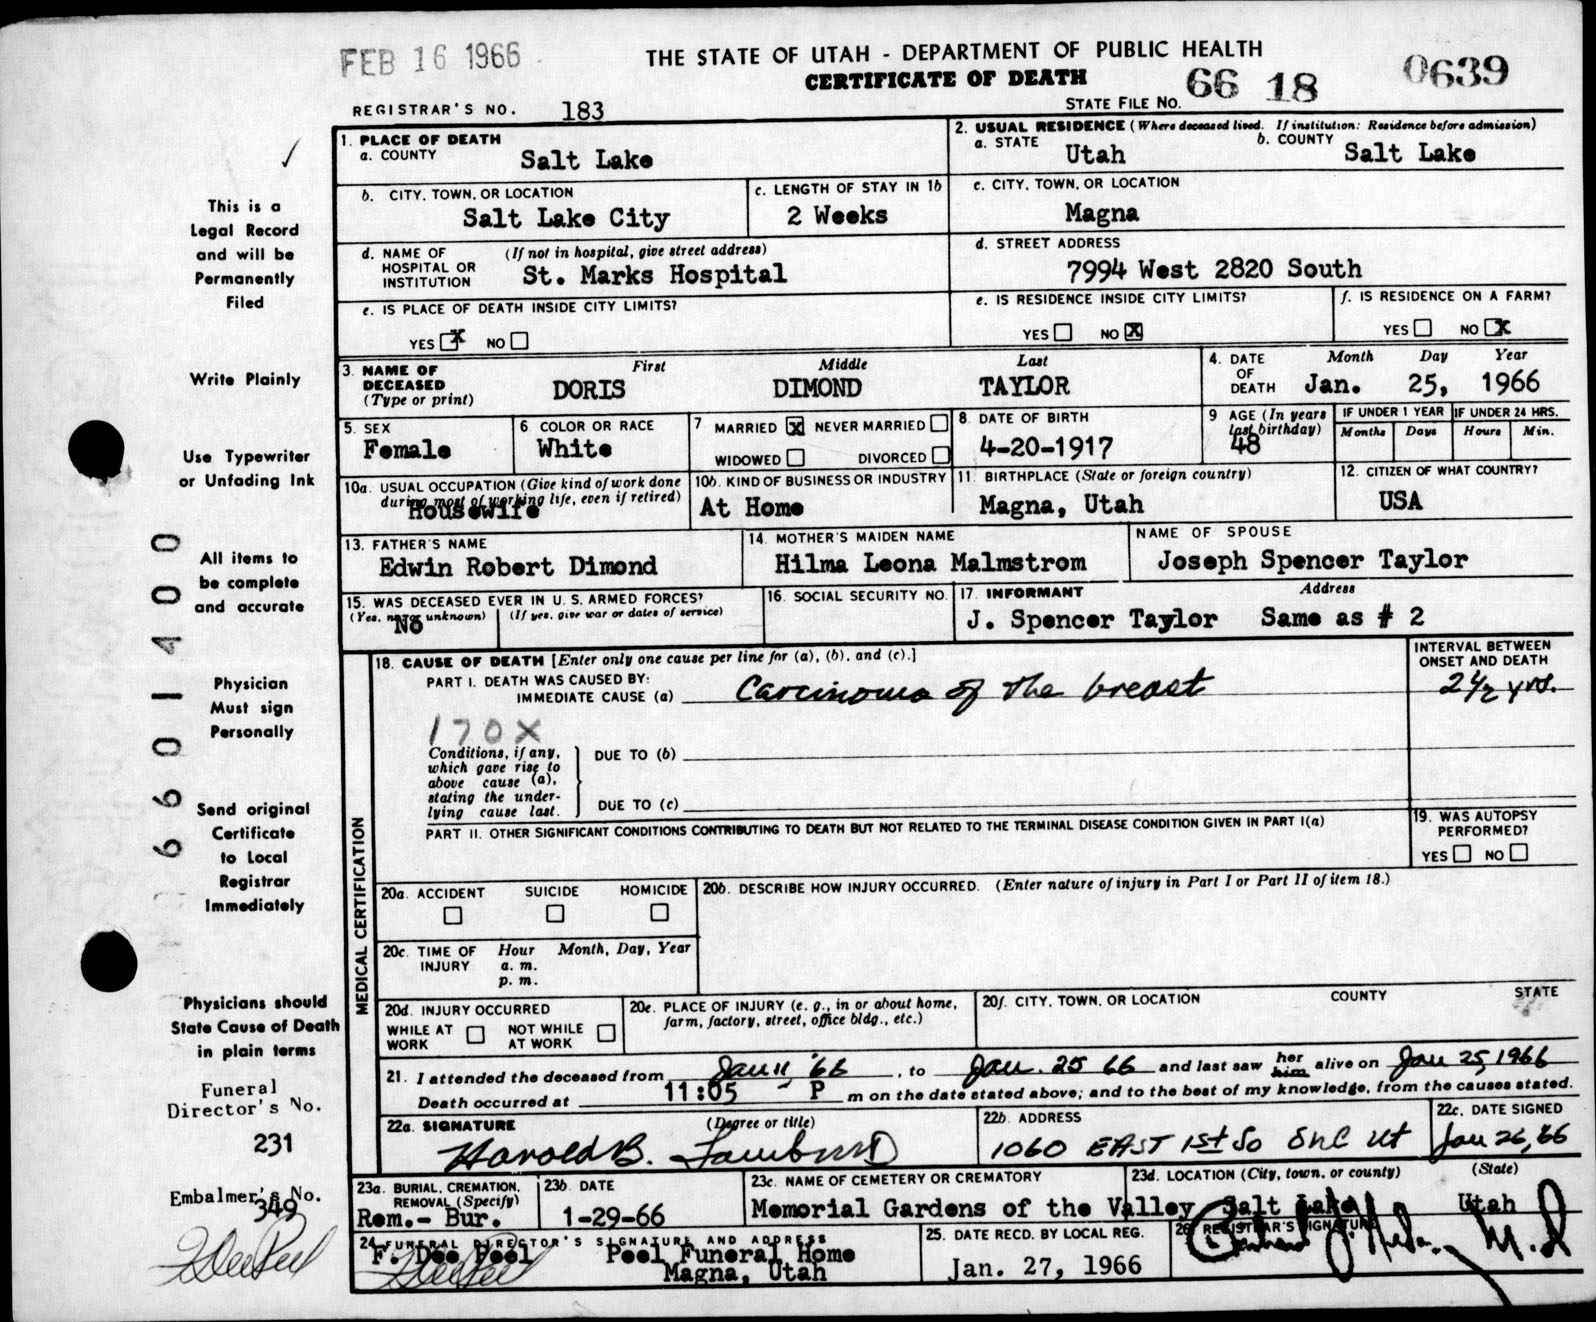 FEB 16 1966
THE STATE OF UTAH - DEPARTMENT OF PUBLIC HEALTH
CERTIFICATE OF DEATH
REGISTRAR'S NO. 183
STATE FILE NO. 66 18 0639
This is a
Legal Record
and will be
Permanently
Filed
Write Plainly
Use Typewriter
or Unfading Ink
All items to
be complete
and accurate
Physician
Must sign
Personally
Send original
Certificate
to Local
Registrar
Immediately
Physicians should
State Cause of Death
in plain terms
Funeral
Director's No.
231
Embalmer's No.
349
66 0 1400
1. PLACE OF DEATH
a. COUNTY Salt Lake
2. USUAL RESIDENCE (Where deceased lived. If institution: Residence before admission)
a. STATE Utah b. COUNTY Salt Lake
b. CITY, TOWN, OR LOCATION
Salt Lake City
c. LENGTH OF STAY IN 1b
2 Weeks
c. CITY, TOWN, OR LOCATION
Magna
d. NAME OF HOSPITAL OR INSTITUTION (If not in hospital, give street address)
St. Marks Hospital
d. STREET ADDRESS
7994 West 2820 South
e. IS PLACE OF DEATH INSIDE CITY LIMITS?
YES X NO
e. IS RESIDENCE INSIDE CITY LIMITS?
YES NO X
f. IS RESIDENCE ON A FARM?
YES NO X
3. NAME OF DECEASED (Type or print)
First Middle Last
DORIS DIMOND TAYLOR
4. DATE OF DEATH
Month Day Year
Jan. 25, 1966
5. SEX
Female
6. COLOR OR RACE
White
7 MARRIED X NEVER MARRIED
WIDOWED DIVORCED
8. DATE OF BIRTH
4-20-1917
9 AGE (In years last birthday)
48
IF UNDER 1 YEAR
Months Days
IF UNDER 24 HRS.
Hours Min.
10a. USUAL OCCUPATION (Give kind of work done during most of working life, even if retired)
Housewife
10b. KIND OF BUSINESS OR INDUSTRY
At Home
11. BIRTHPLACE (State or foreign country)
Magna, Utah
12. CITIZEN OF WHAT COUNTRY?
USA
13. FATHER'S NAME
Edwin Robert Dimond
14. MOTHER'S MAIDEN NAME
Hilma Leona Malmstrom
NAME OF SPOUSE
Joseph Spencer Taylor
15. WAS DECEASED EVER IN U. S. ARMED FORCES?
(Yes, no or unknown) (If yes, give war or dates of service)
No
16. SOCIAL SECURITY NO.
17. INFORMANT Address
J. Spencer Taylor Same as # 2
MEDICAL CERTIFICATION
18. CAUSE OF DEATH [Enter only one cause per line for (a), (b), and (c).]
INTERVAL BETWEEN
ONSET AND DEATH
PART I. DEATH WAS CAUSED BY:
IMMEDIATE CAUSE (a) Carcinoma of the breast 2 1/2 yrs.
170X
Conditions, if any,
which gave rise to
above cause (a),
stating the under-
lying cause last.
DUE TO (b)
DUE TO (c)
PART II. OTHER SIGNIFICANT CONDITIONS CONTRIBUTING TO DEATH BUT NOT RELATED TO THE TERMINAL DISEASE CONDITION GIVEN IN PART I(a)
19. WAS AUTOPSY
PERFORMED?
YES NO
20a. ACCIDENT SUICIDE HOMICIDE
20b. DESCRIBE HOW INJURY OCCURRED. (Enter nature of injury in Part I or Part II of item 18.)
20c. TIME OF INJURY Hour Month, Day, Year
a. m.
p. m.
20d. INJURY OCCURRED
WHILE AT WORK NOT WHILE AT WORK
20e. PLACE OF INJURY (e. g., in or about home, farm, factory, street, office bldg., etc.)
20f. CITY, TOWN, OR LOCATION COUNTY STATE
21. I attended the deceased from Jan 11, '66, to Jan. 25 66 and last saw her him alive on Jan 25, 1966
Death occurred at 11:05 - P m on the date stated above; and to the best of my knowledge, from the causes stated.
22a. SIGNATURE (Degree or title)
Harold B. MD
22b. ADDRESS
1060 EAST 1st So SLC Ut
22c. DATE SIGNED
Jan 26, 66
23a. BURIAL, CREMATION, REMOVAL (Specify)
Rem.- Bur.
23b. DATE
1-29-66
23c. NAME OF CEMETERY OR CREMATORY
Memorial Gardens of the Valley
23d. LOCATION (City, town, or county) (State)
Salt Lake Utah
24. FUNERAL DIRECTOR'S SIGNATURE AND ADDRESS
F. Dee Peel Peel Funeral Home
Magna, Utah
25. DATE RECD. BY LOCAL REG.
Jan. 27, 1966
26. REGISTRAR'S SIGNATURE
M.D